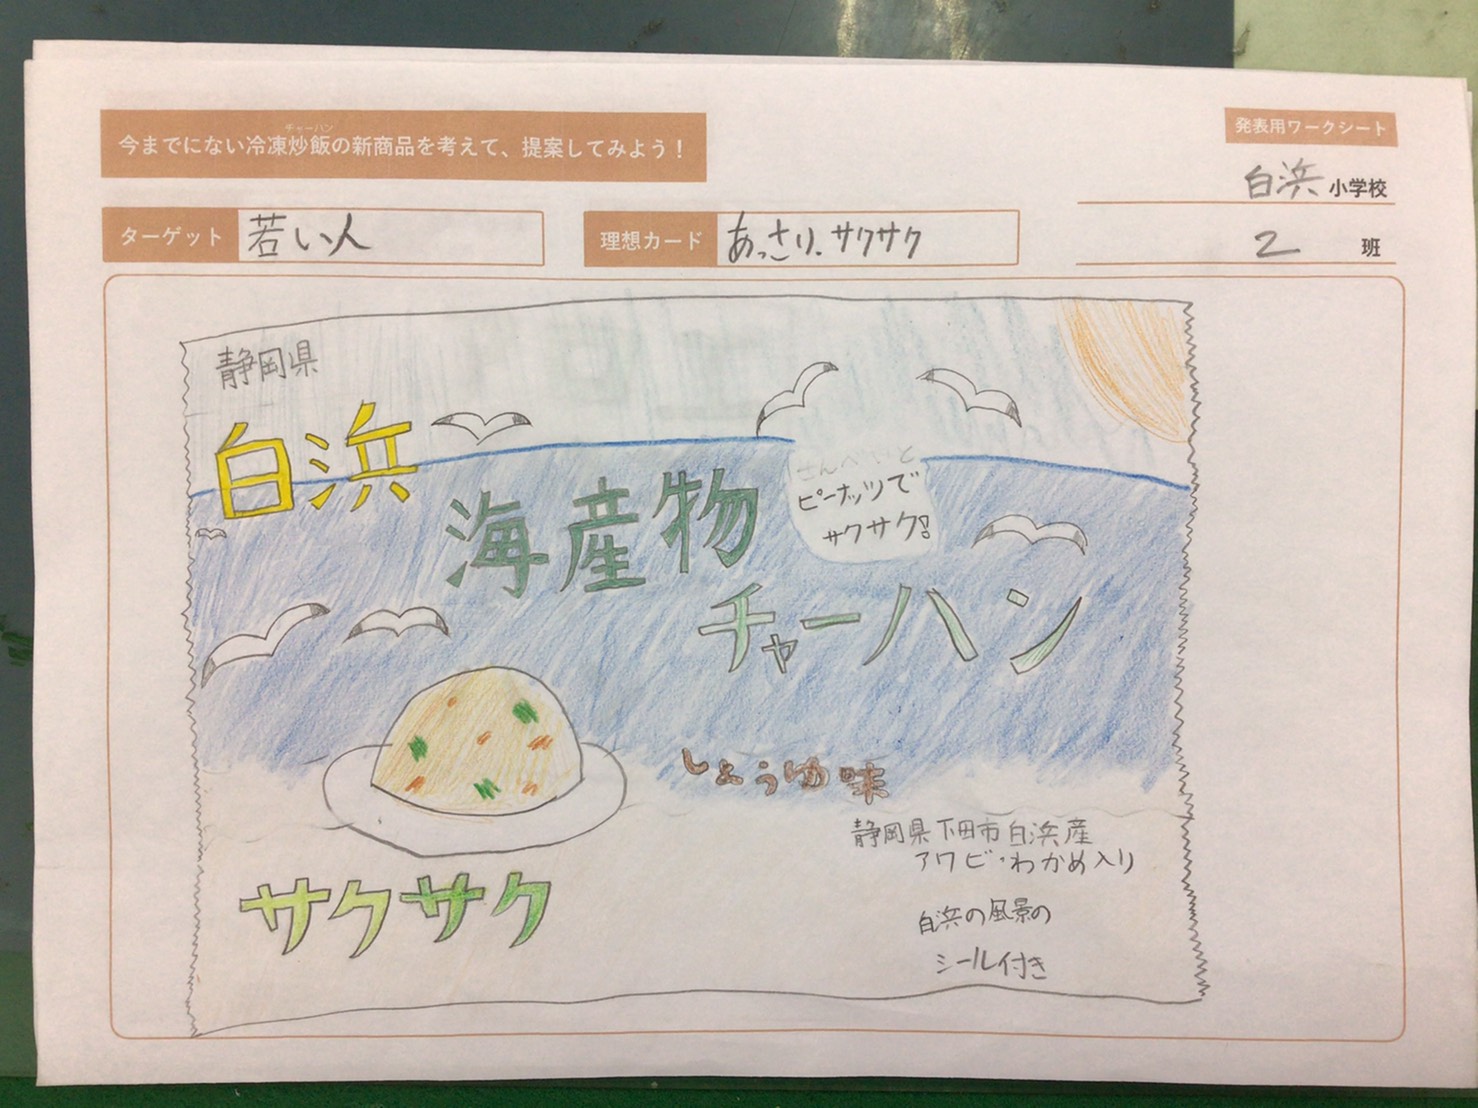 チャーハン
今までにない冷凍炒飯の新商品を考えて、提案してみよう!
発表用ワークシート
白浜 小学校
ターゲット 若い人
理想カード あっさり、サクサク
2 班
静岡県
白浜
海産物
チャーハン
ピーナッツで
サクサク!
しょうゆ味
静岡県下田市白浜産
アワビ・わかめ入り
サクサク
白浜の風景の
シール付き